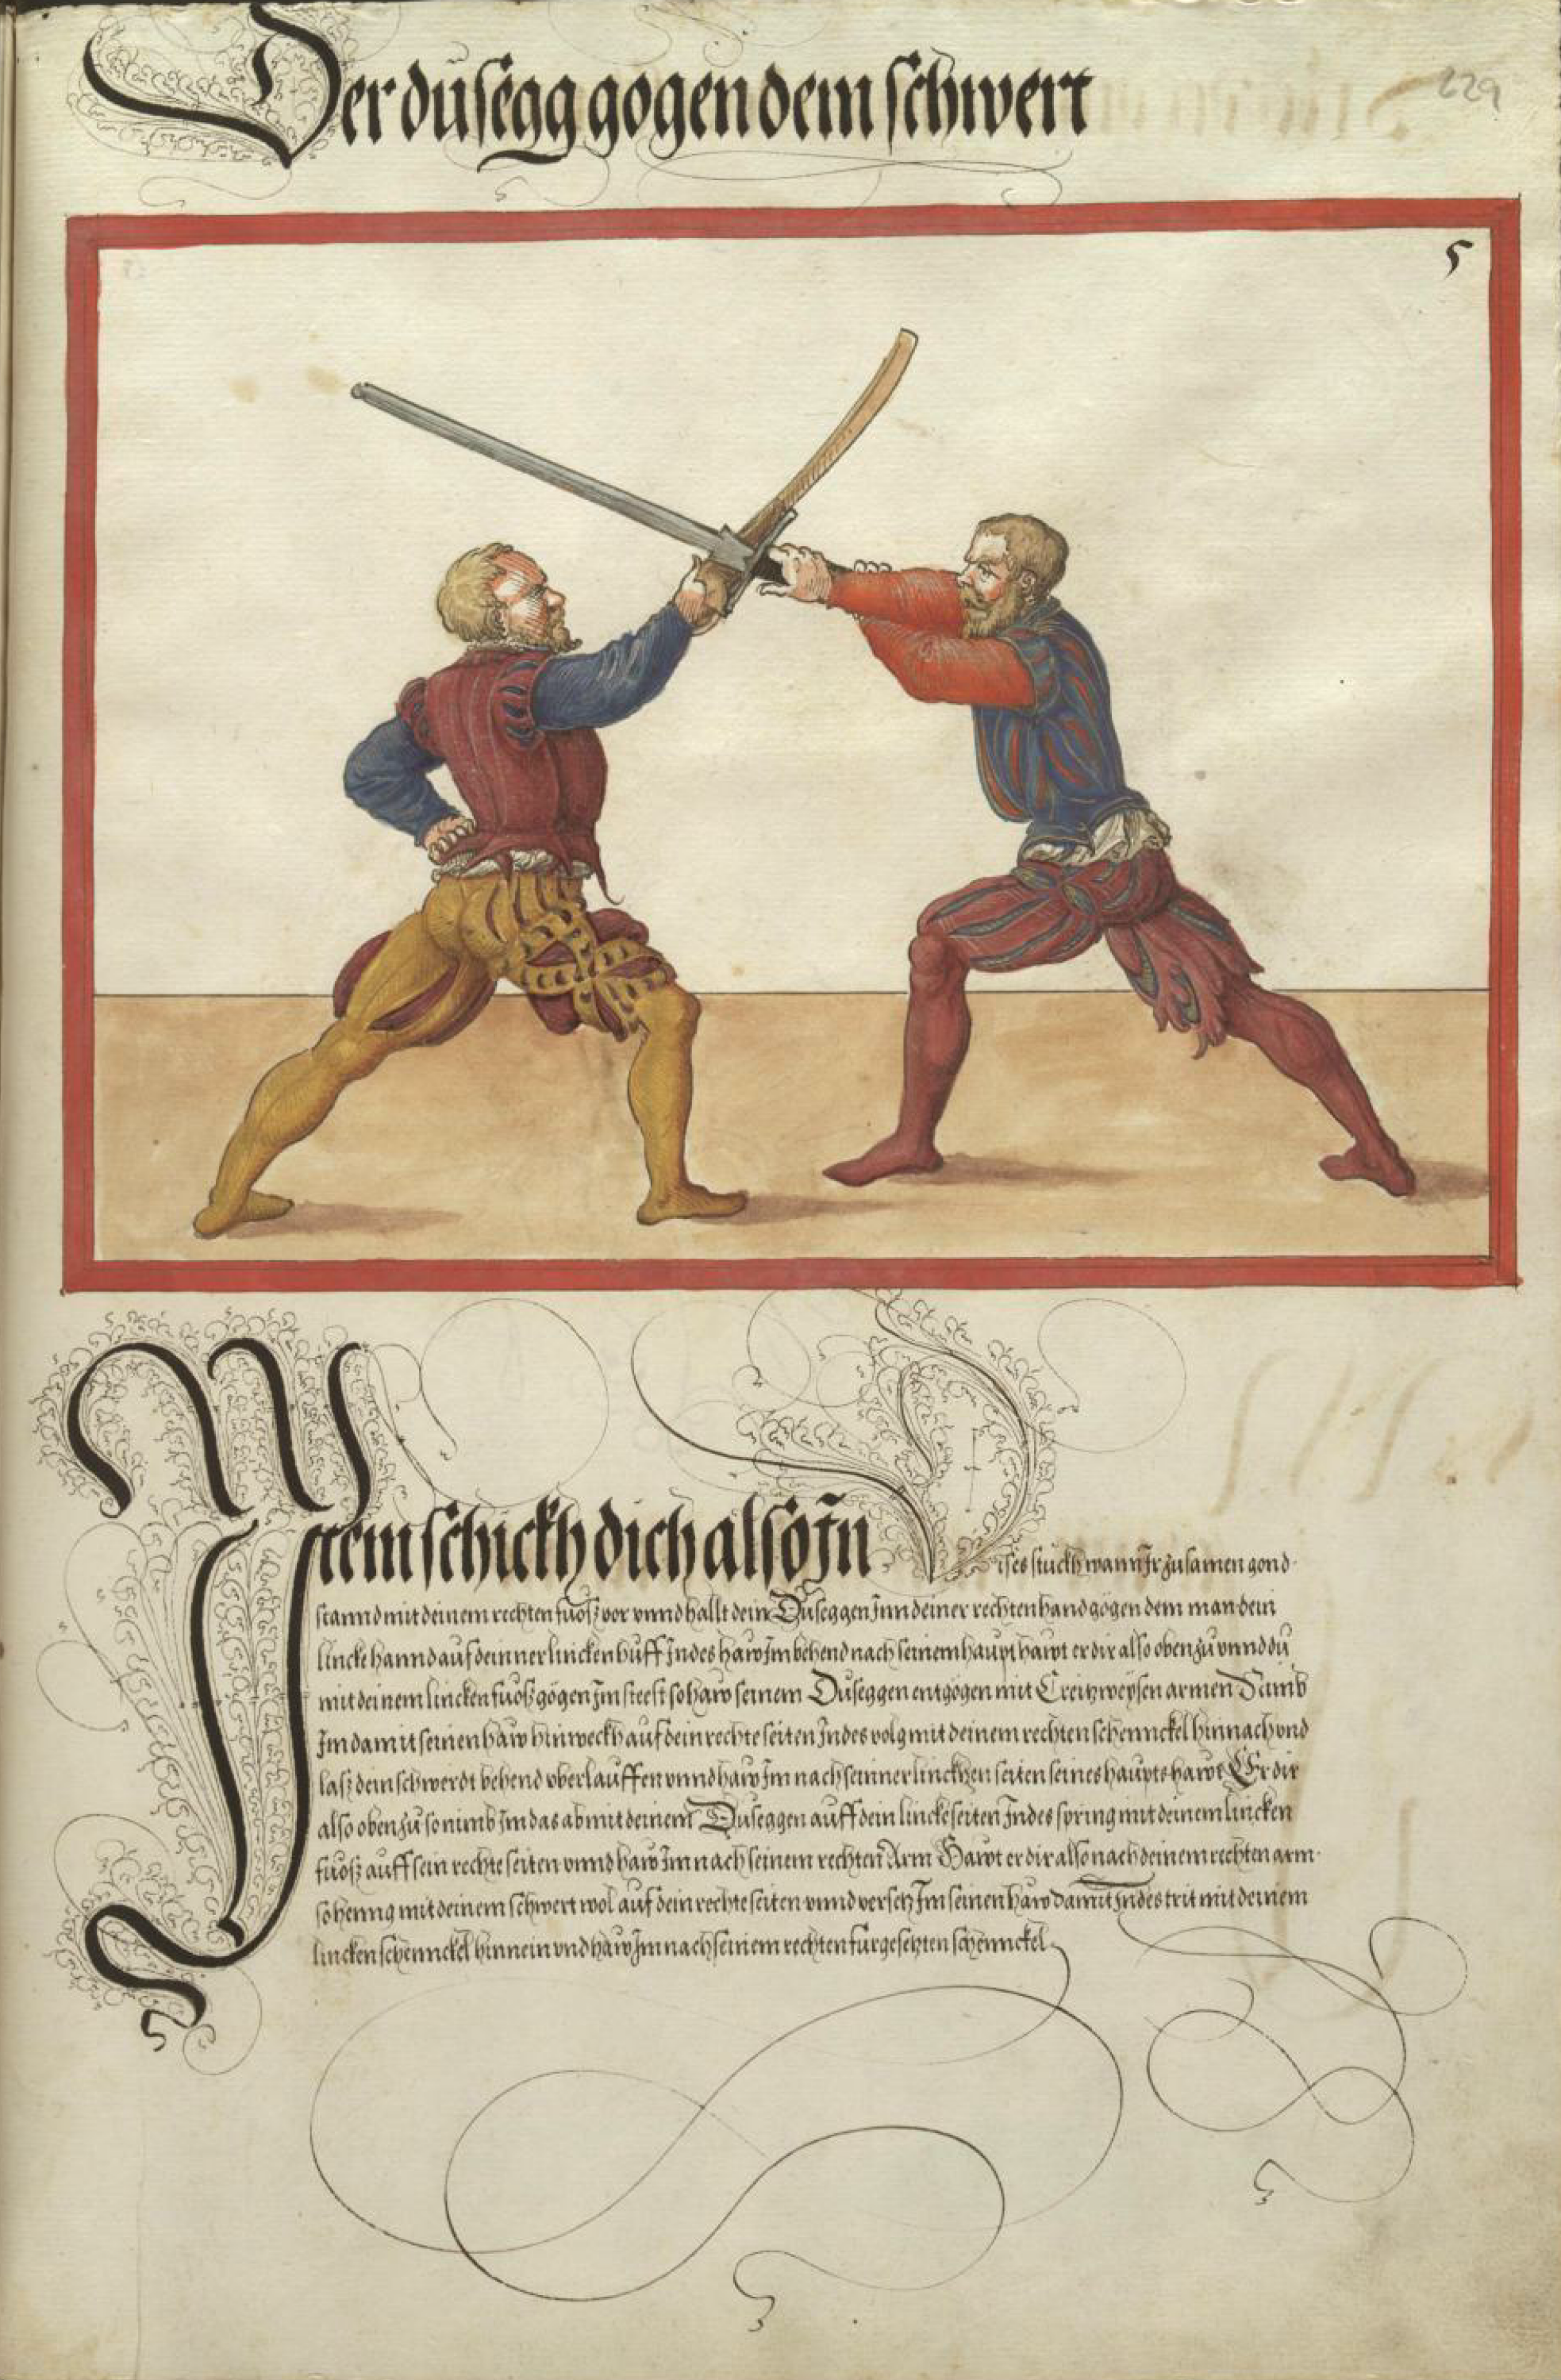 Der dusegg gogen dem schwert
229
5
Item schickh dich also Jn Dises stuckh wann Jr zusamen gond
stannd mit deinem rechten fuoß vor vnnd hallt dein Duseggen Jnn deiner rechten hand gogen dem man dein
lincke hannd auf deinner lincken huff Jndes haw Jm behend nach seinem haupt hawt er dir also oben zu vnnd du
mit deinem lincken fuoß gogen Jm steest so haw seinem Duseggen entgogen mit Creitzweysen armen Nimb
Jm damit seinen haw hinweckh auf dein rechte seiten Jndes volg mit deinem rechten schennckel hinnach vnd
laß dein schwerdt behend vberlauffen vnnd haw Jm nach seinner linckhen seiten seines haupts hawt Er dir
also oben zu so nimb Jm das ab mit deinem Duseggen auff dein lincke seiten Jndes spring mit deinem lincken
fuoß auff sein rechte seiten vnnd haw Jm nach seinem rechten Arm Hawt er dir also nach deinem rechten arm
so henng mit deinem schwert wol auf dein rechte seiten vnnd versetz Jm seinen haw damit Jndes trit mit deinem
lincken schennckel hinnein vnd haw Jm nach seinem rechten fürgesetzten schennckel